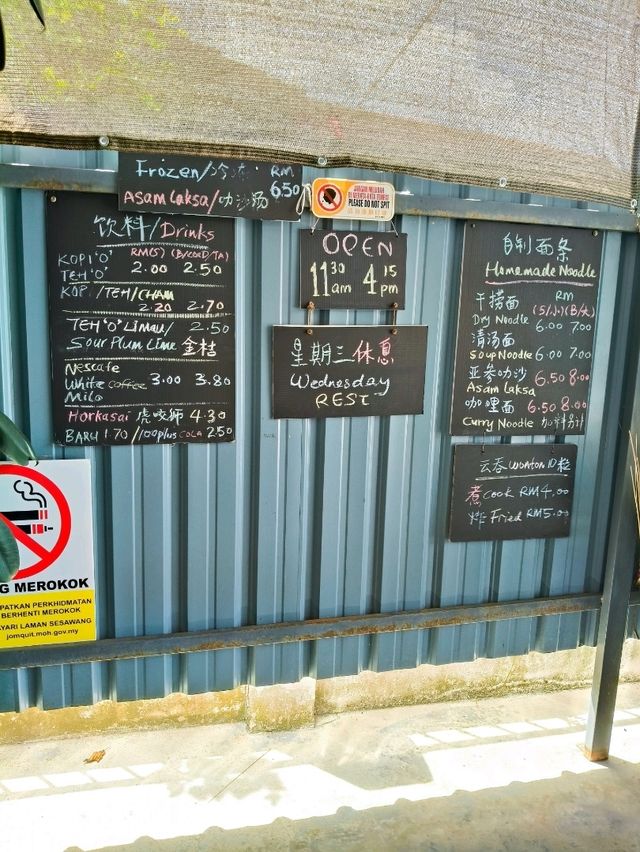 Frozen/冷冻 RM
Asam Laksa/叻沙汤 6.50
PLEASE DO NOT SPIT
饮料/Drinks
RM(S) (B/COLD/TA)
KOPI 'O'
TEH 'O' 2.00 2.50
KOPI/TEH/CHAM
2.20 2.70
TEH 'O' Limau/ 2.50
Sour Plum Lime 金桔
Nescafe
White Coffee 3.00 3.80
Milo
Horkasai 虎咬狮 4.30
BARLI 1.70 /100plus COLA 2.50
OPEN
11 30 am 4 15 pm
星期三休息
Wednesday
REST
自制面条
Homemade Noodle
干捞面 RM
(S/小) (B/大)
Dry Noodle 6.00 7.00
清汤面
Soup Noodle 6.00 7.00
亚参叻沙 6.50 8.00
Asam Laksa
咖哩面 6.50 8.00
Curry Noodle 加料另计
云吞 Wonton 10粒
煮 Cook RM4.00
炸 Fried RM5.00
G MEROKOK
PATKAN PERKHIDMATAN
BERHENTI MEROKOK
AYARI LAMAN SESAWANG
jomquit.moh.gov.my